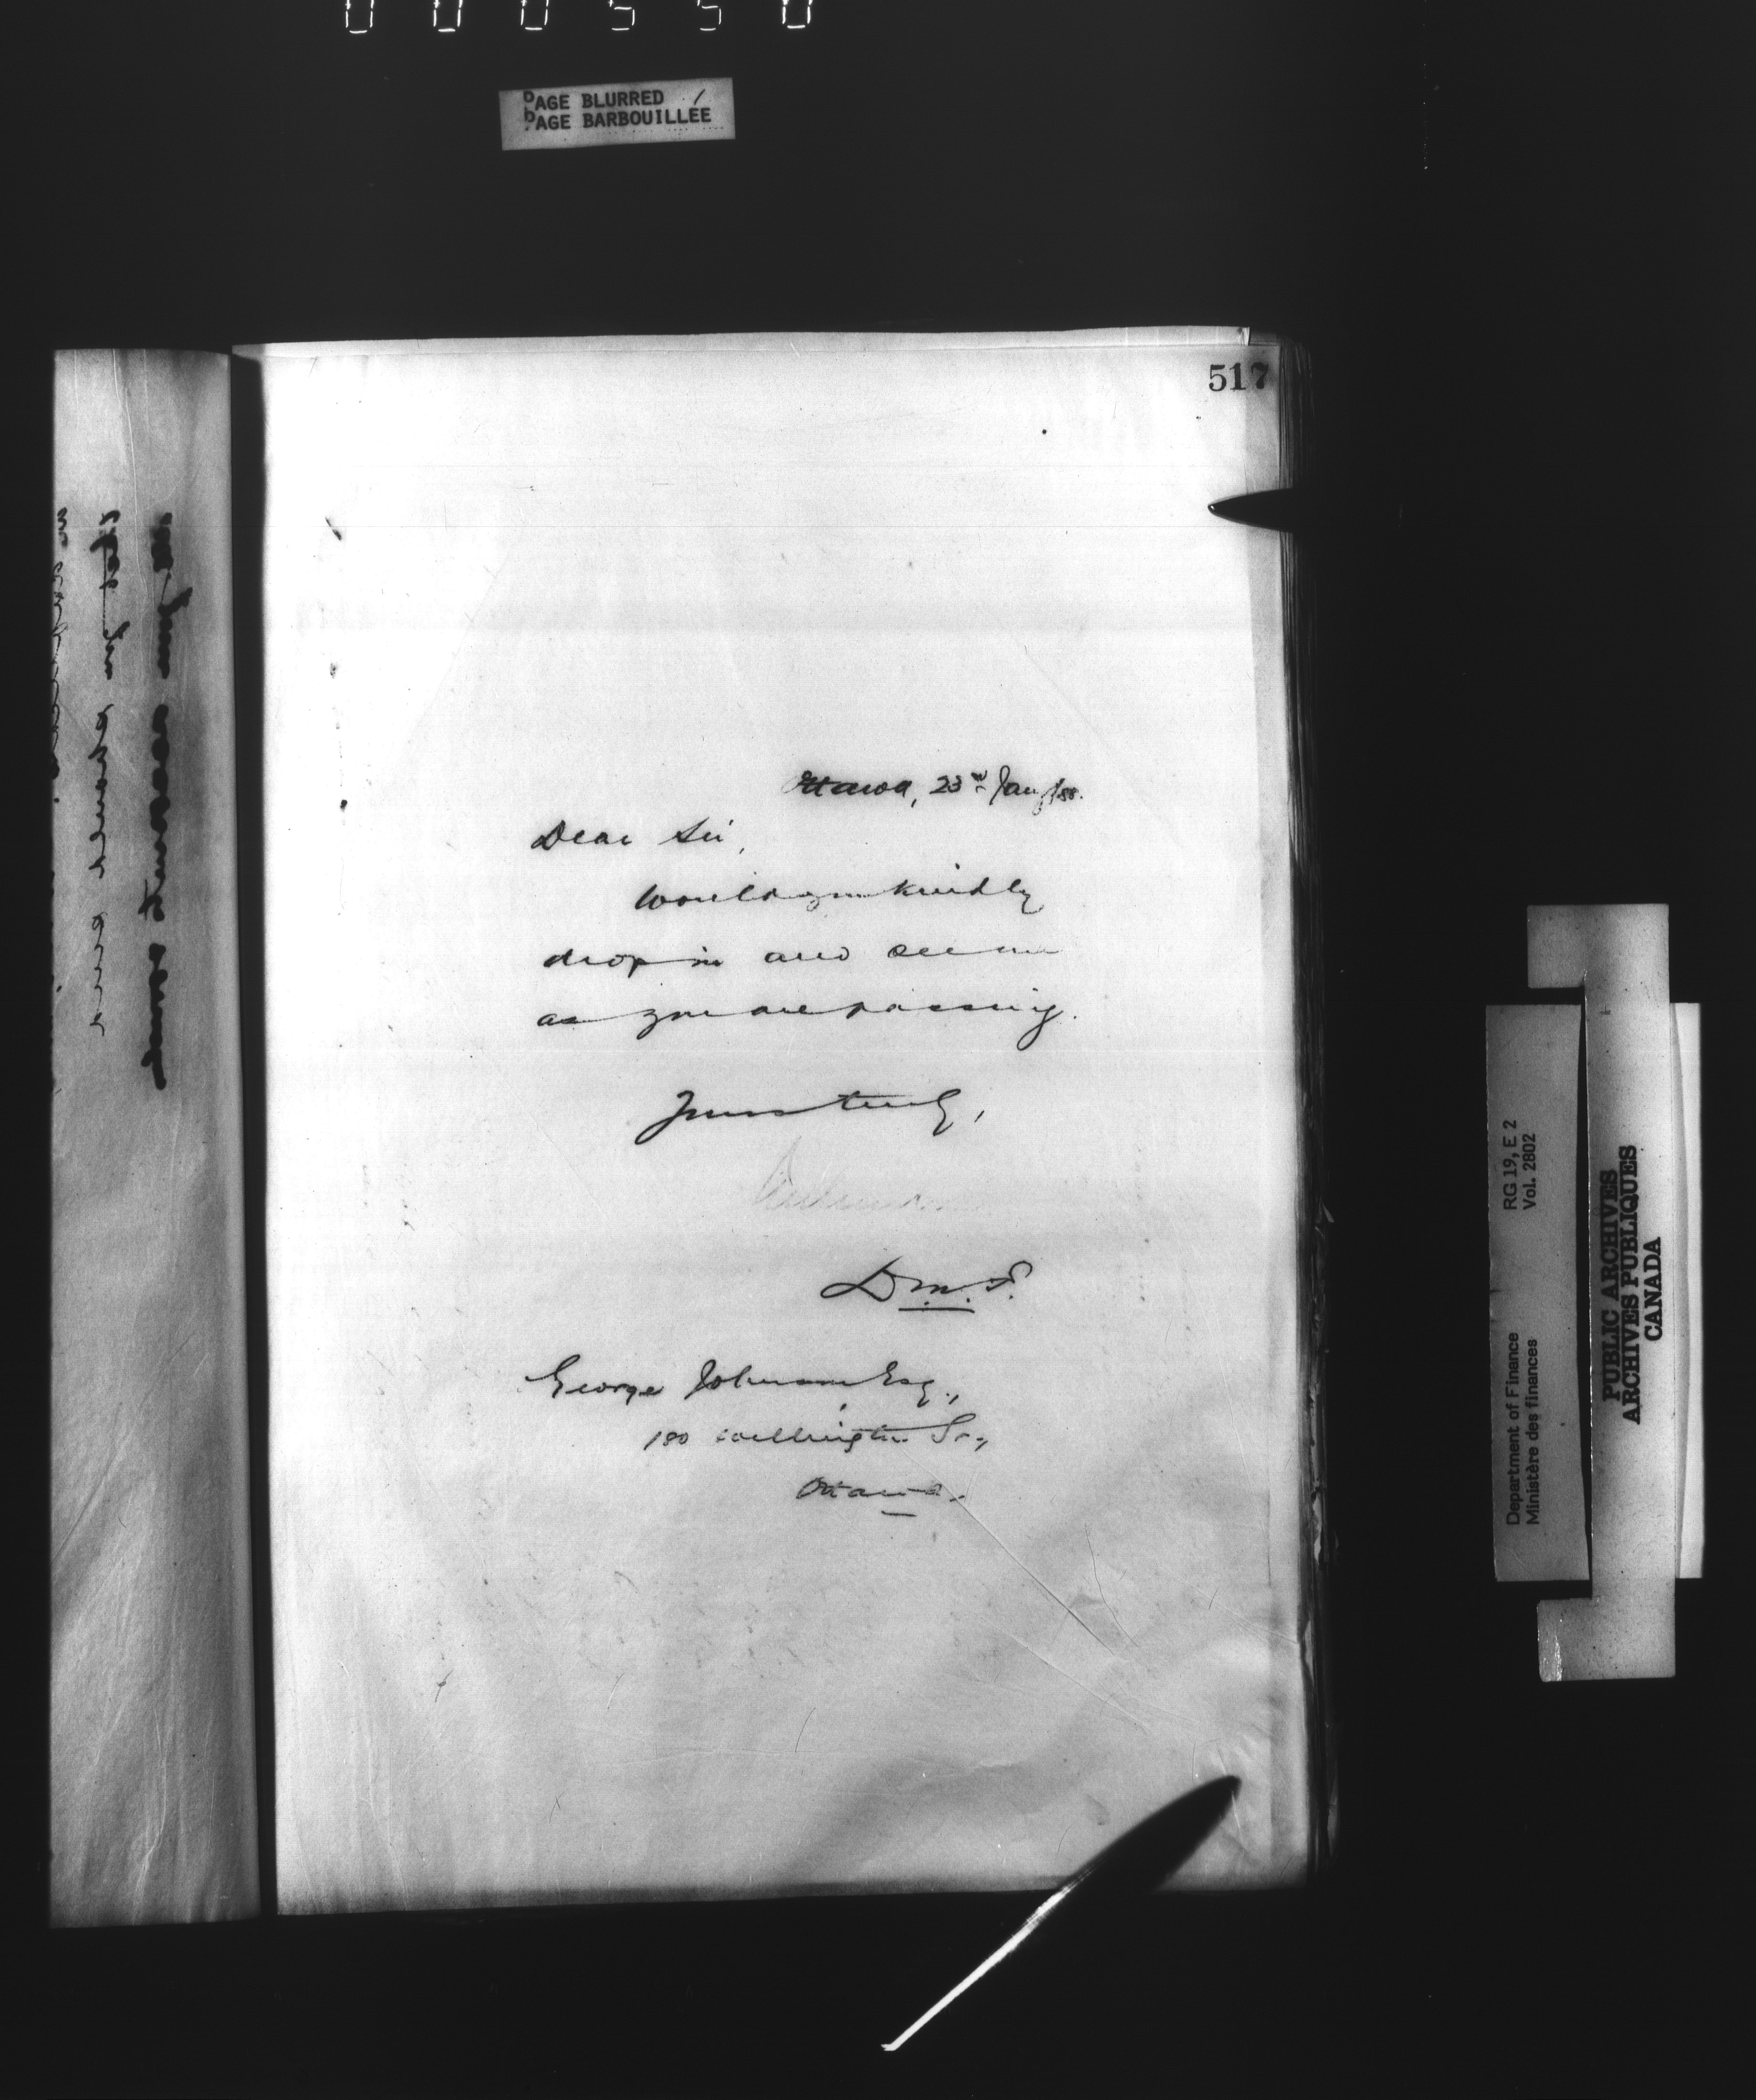 000550
PAGE BLURRED
PAGE BARBOUILLÉE
517
Ottawa, 23rd Jany/88.
Dear Sir,
Would you kindly
drop in and see me
as you are passing.
Yours truly,
D.M.F.
George Johnson Esq.,
180 Wellington St.,
Ottawa.
RG 19, E 2
Vol. 2802
Department of Finance
Ministère des finances
PUBLIC ARCHIVES
ARCHIVES PUBLIQUES
CANADA